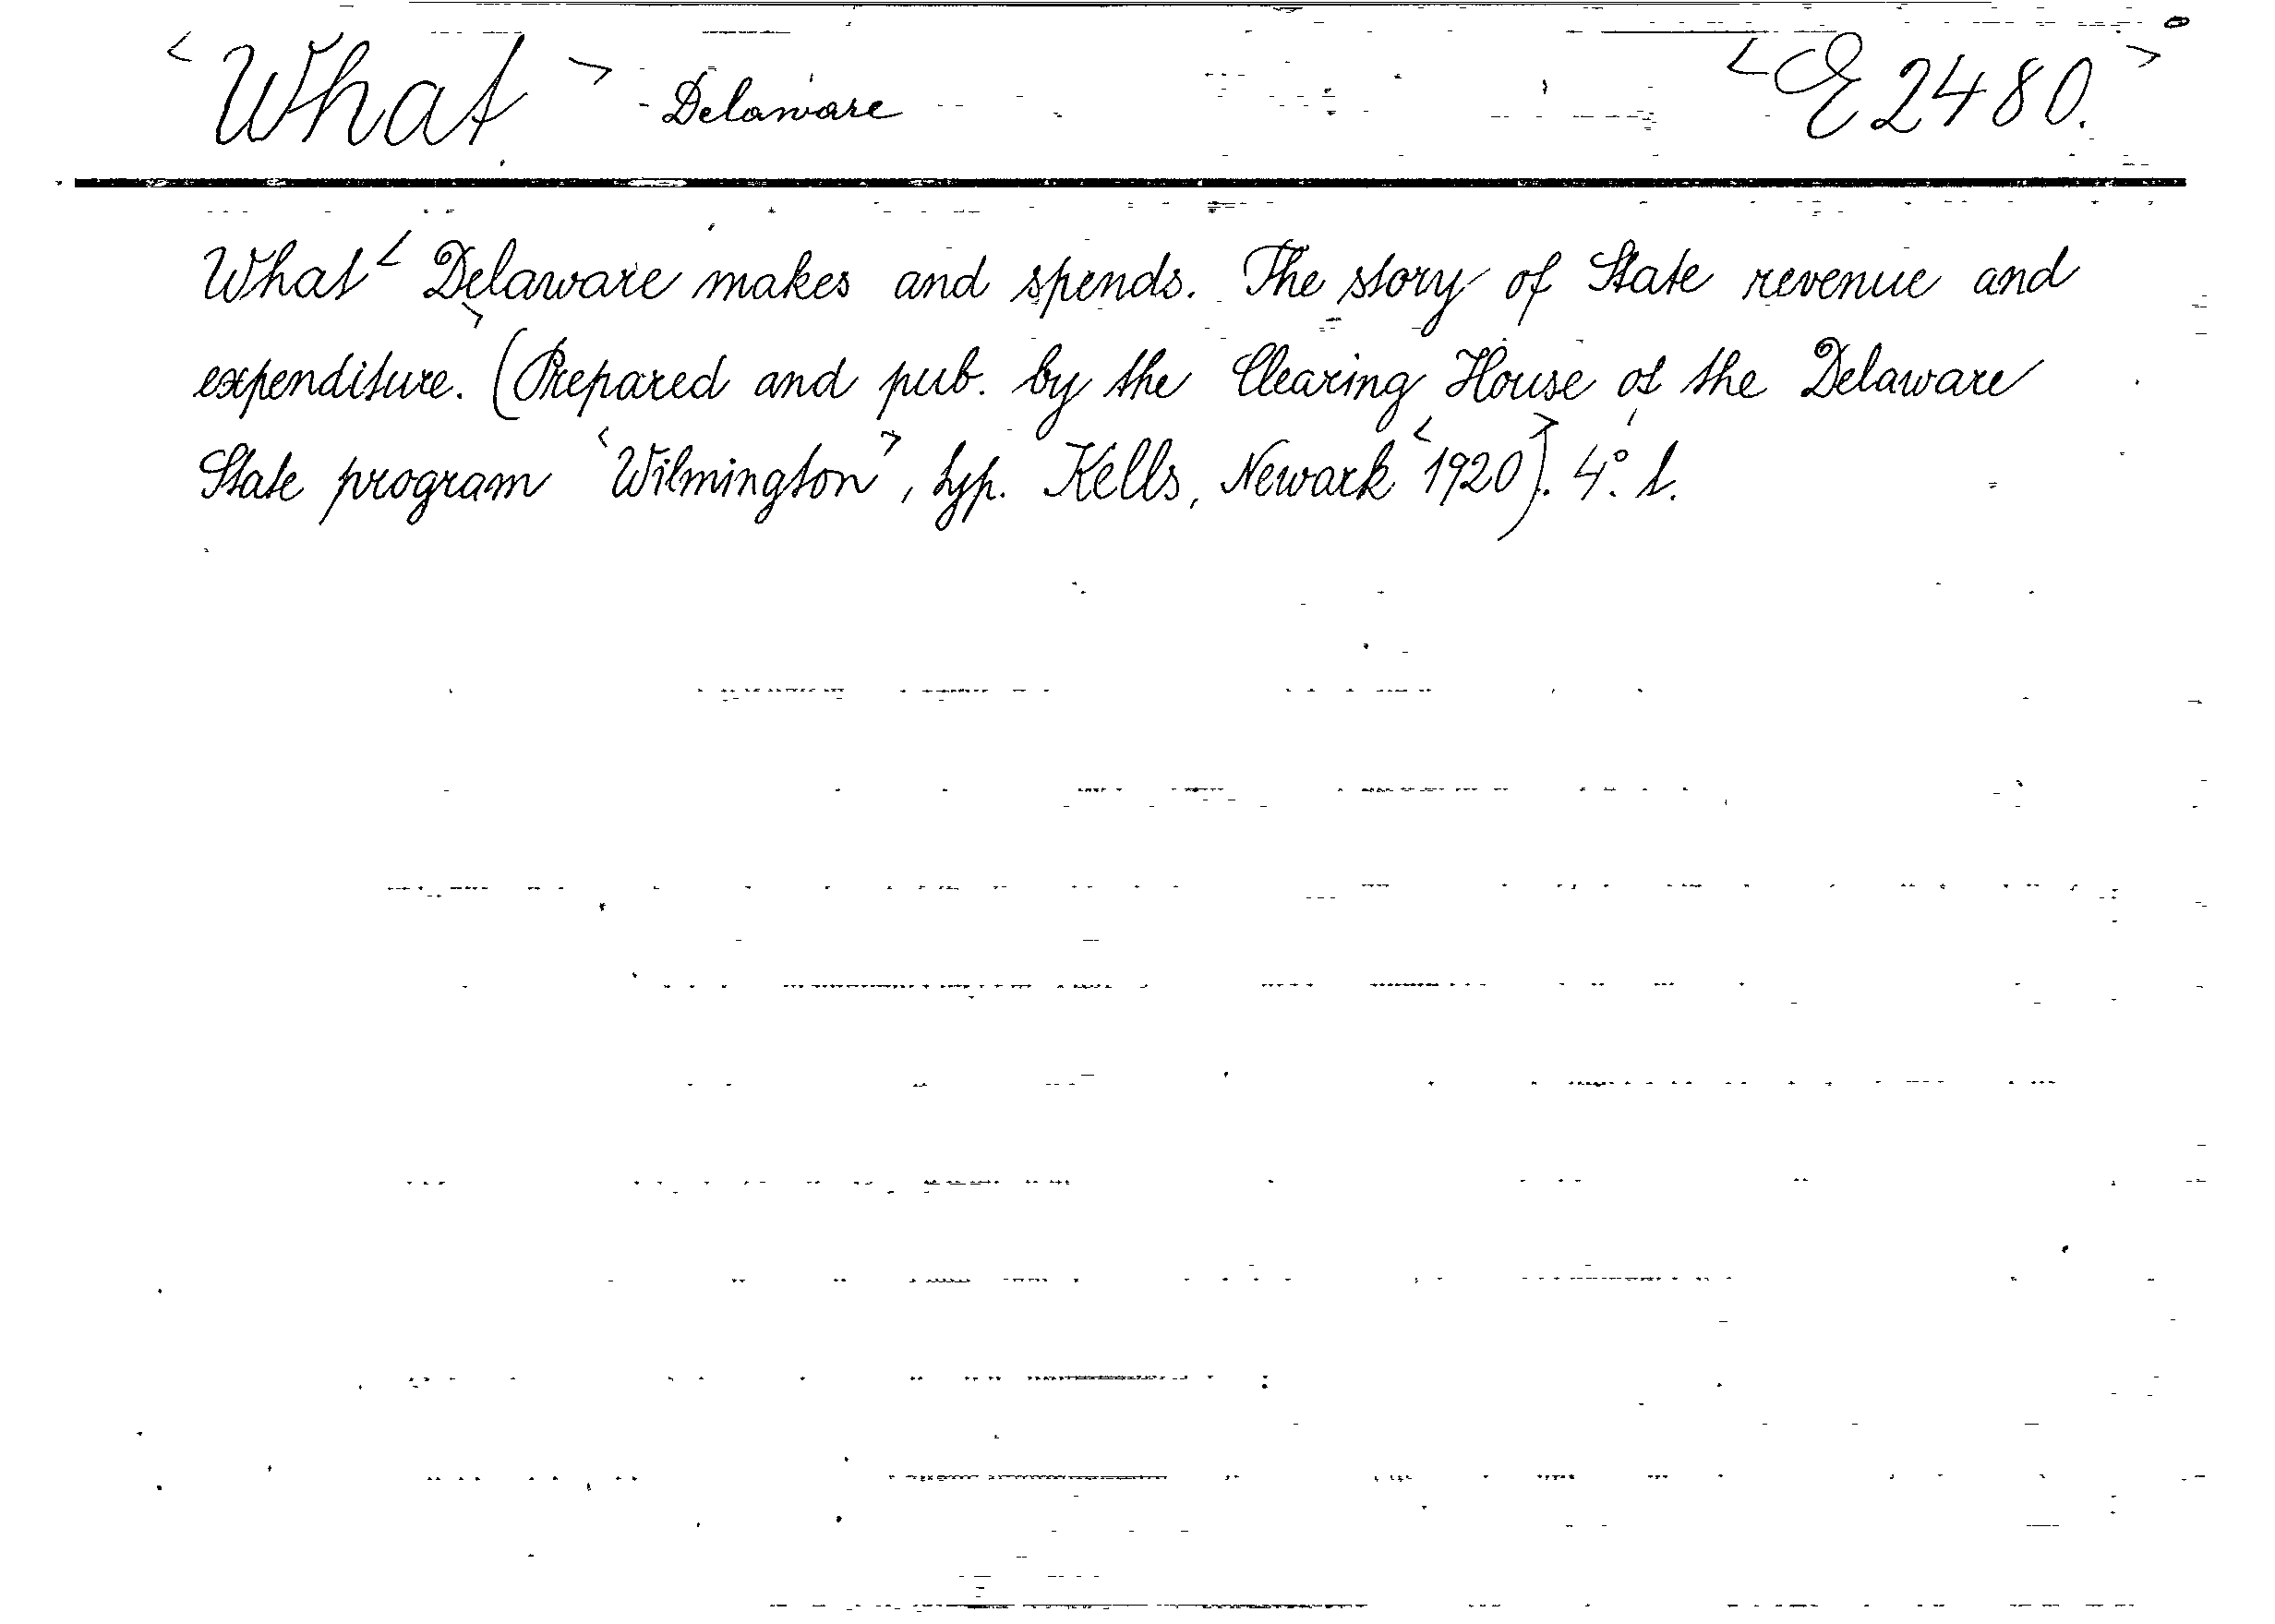 <What> Delaware <E 2480.>
What <Delaware> makes and spends. The story of State revenue and
expenditure. (Prepared and pub. by the Clearing House of the Delaware
State program <Wilmington>, typ. Kells, Newark <1920>). 4°. t.